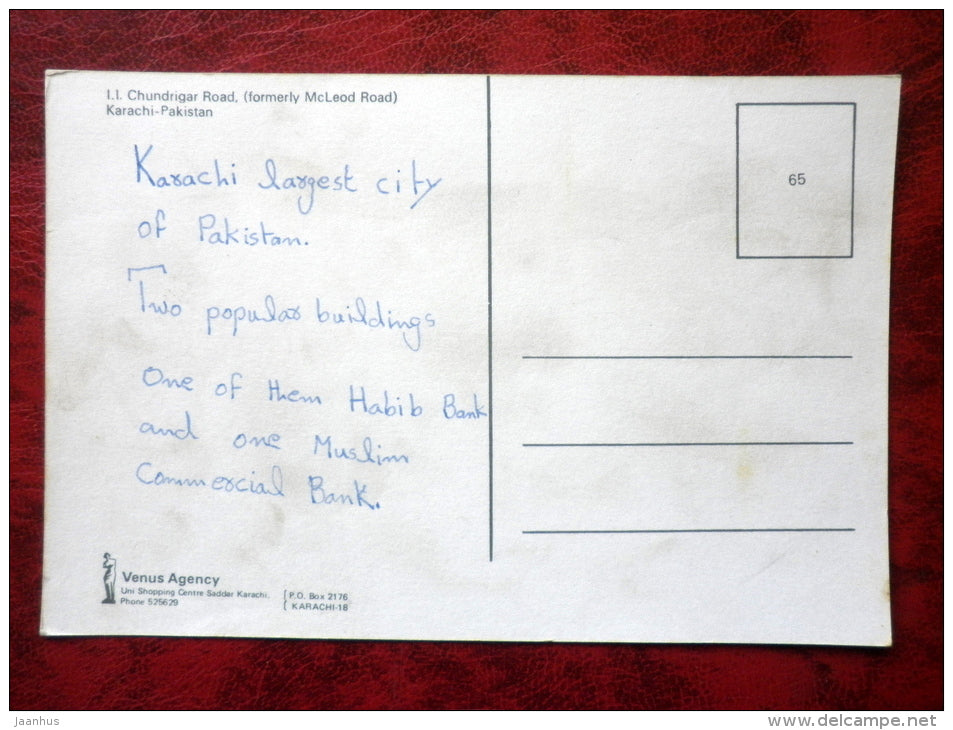 I.I. Chundrigar Road, (formerly McLeod Road)
Karachi-Pakistan
Karachi largest city
of Pakistan.
Two popular buildings
One of them Habib Bank
and one Muslim
Commercial Bank.
65
Venus Agency
Uni Shopping Centre Saddar Karachi.
Phone 525629
P.O. Box 2176
KARACHI-18
Jaanhus
www.delcampe.net